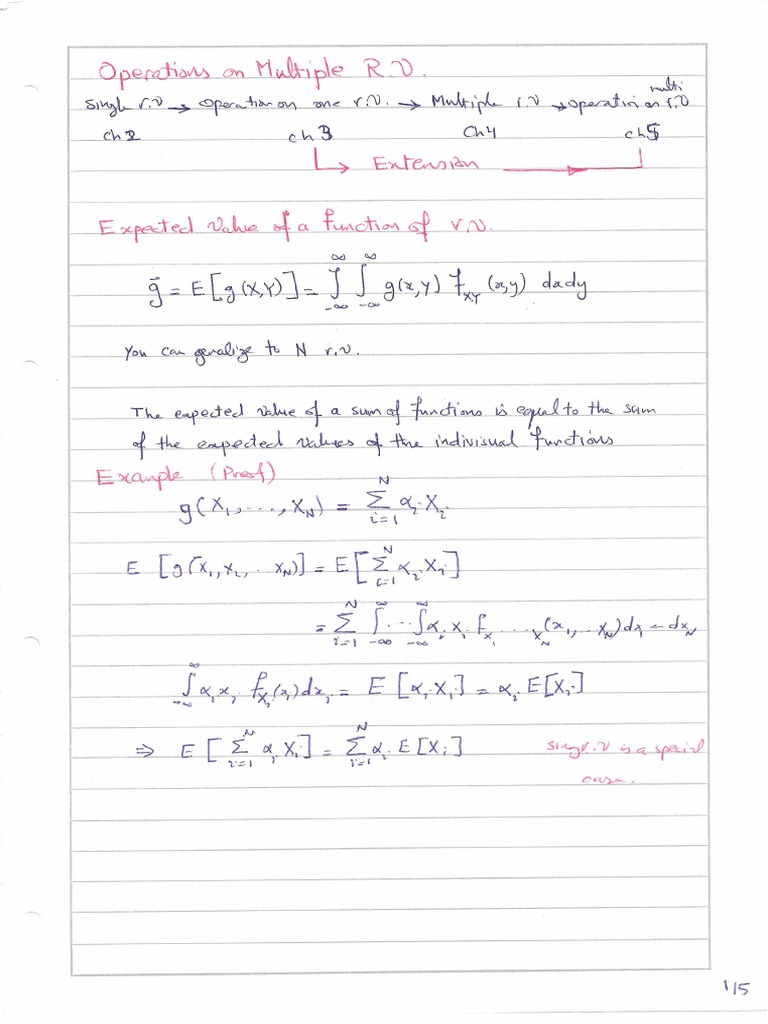 Operations on Multiple R.V.
Single r.v → operation on one r.v. → Multiple r.v → operation on multi r.v
ch2 ch3 Ch4 ch5
Extension
Expected Value of a function of r.v.
ḡ = E[g(X,Y)] = ∫_{-∞}^{∞} ∫_{-∞}^{∞} g(x,y) f_{XY}(x,y) dxdy
You can genalize to N r.v.
The expected value of a sum of functions is equal to the sum
of the expected values of the indivisual functions
Example (Proof)
g(X₁, ..., X_N) = Σ_{i=1}^{N} α_i X_i
E [g(X₁, X₂, .. X_N)] = E[Σ_{i=1}^{N} α_i X_i]
= Σ_{i=1}^{N} ∫_{-∞}^{∞} ... ∫_{-∞}^{∞} α_i x_i f_{X₁ .... X_N}(x₁, ... x_N) dx₁ — dx_N
∫_{-∞}^{∞} α_i x_i f_{X_i}(x_i) dx_i = E [α_i X_i] = α_i E[X_i]
⇒ E [Σ_{i=1}^{N} α_i X_i] = Σ_{i=1}^{N} α_i E[X_i]
Sing r.v is a special
case.
1/5